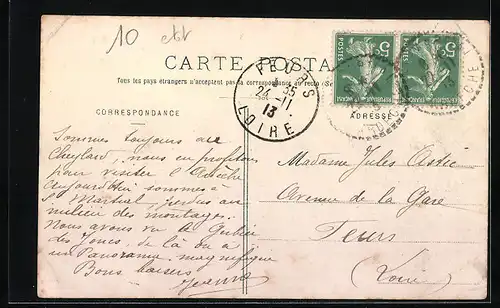 10
CARTE POSTALE
Tous les pays étrangers n'acceptent pas la correspondance au recto (Se
CORRESPONDANCE
ADRESSE
FEURS
LOIRE
35
24 - 11
13
5c
POSTES
REPUBLIQUE FRANÇAISE
5c
POSTES
REPUBLIQUE FRANÇAISE
Sommes toujours au
Cheylard, nous en profitons
pour visiter l'Ardèche
Aujourd'hui sommes à
St Martial, perdus au
milieu des montagnes.
Nous avons vu le Gerbier
des Joncs, de là on a
un Panorama magnifique
Bons baisers
Jeanne
Madame Jules Astié
Avenue de la Gare
Feurs
(Loire)